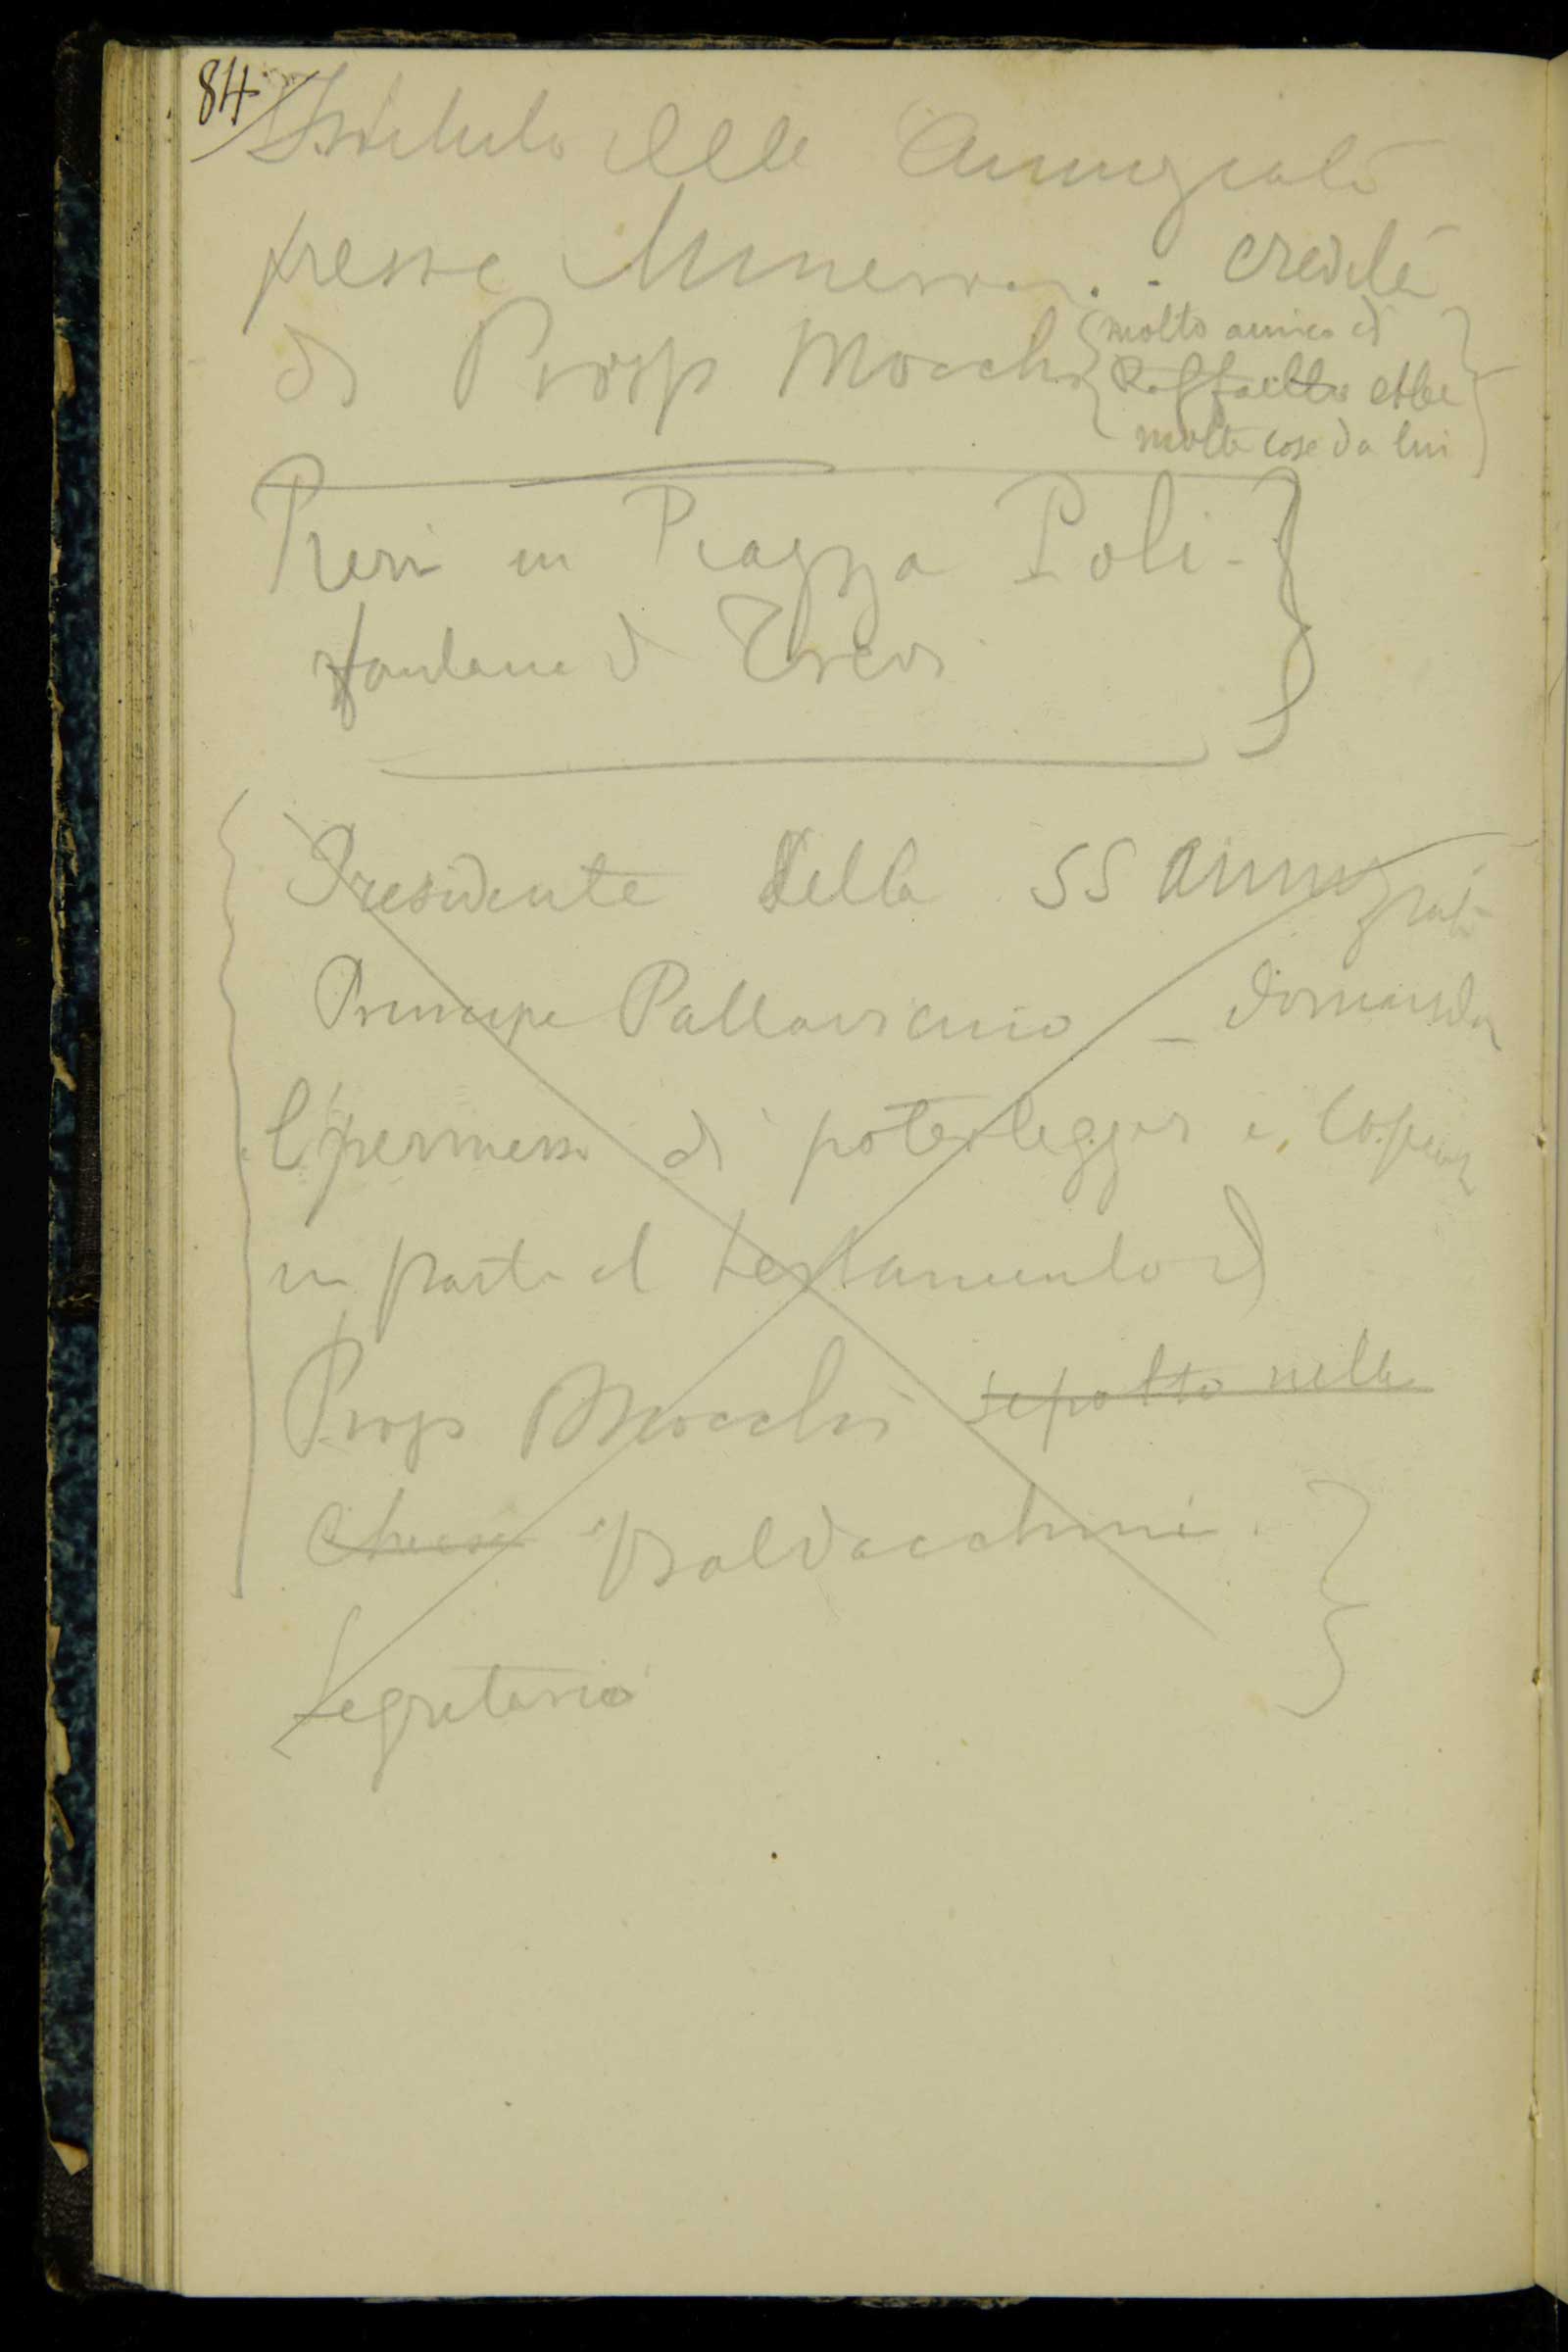 84
Istituto della Annunziata
presso Minerva . . eredità
di Prosp Mocchi {molto amico di
Raffaello ebbe
molte cose da lui}
Pieri in Piazza Poli -
fontana di Trevi
Presidente della SS Annunziata
Principe Pallavicino - domandar
il permesso di poter legger e copiar
in parte il testamento di
Prosp Mocchi sepolto nella
Chiesa Baldacchini
Segretario